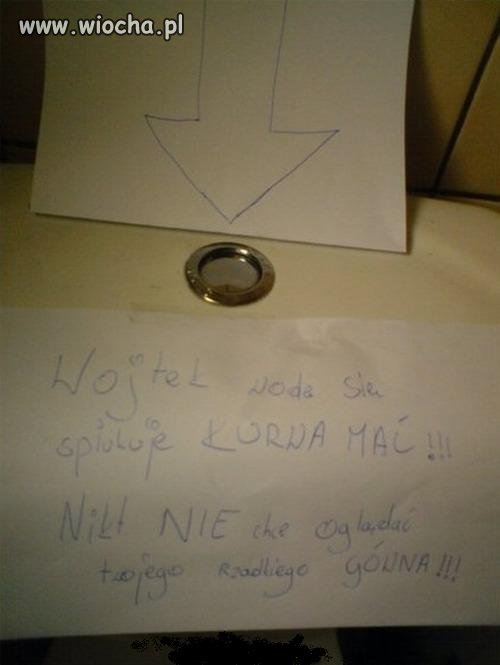 www.wiocha.pl
Wojtek woda się
spłukuje KURWA MAĆ!!!
Nikt NIE chce oglądać
twojego rzadkiego GÓWNA!!!